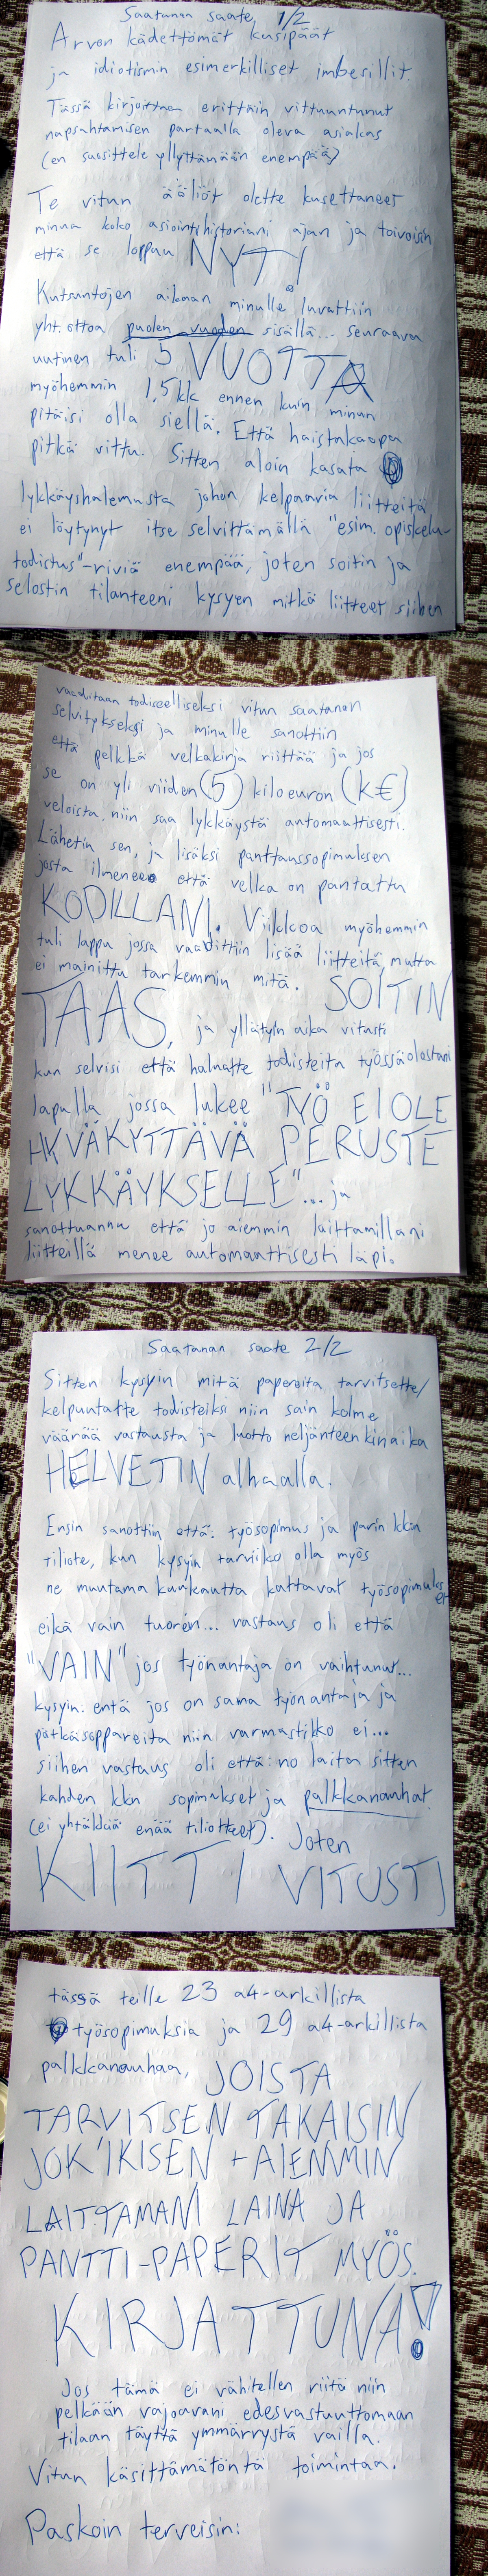 Saatanan saate, 1/2
Arvon kädettömät kusipäät
ja idiotismin esimerkilliset imbesillit.
Tässä kirjoittaa erittäin vittuuntunut
napsahtamisen partaalla oleva asiakas
(en suosittele yllyttämään enempää)
Te vitun ääliöt olette kusettaneet
minua koko asiointihistoriani ajan ja toivoisin
että se loppuu NYT!
Kutsuntojen aikaan minulle luvattiin
yht.ottoa puolen vuoden sisällä... seuraava
uutinen tuli 5 VUOTTA
myöhemmin 1,5kk ennen kuin minun
pitäisi olla siellä. Että haistakaapa
pitkä vittu. Sitten aloin kasata
lykkäyshakemusta johon kelpaavia liitteitä
ei löytynyt itse selvittämällä "esim. opiskelu-
todistus"-riviä enempää, joten soitin ja
selostin tilanteeni kysyen mitkä liitteet siihen
vaaditaan todisteelliseksi vitun saatanan
selvitykseksi ja minulle sanottiin
että pelkkä velkakirja riittää ja jos
se on yli viiden (5) kiloeuron (k€)
veloista, niin saa lykkäystä automaattisesti.
Lähetin sen, ja lisäksi panttaussopimuksen
josta ilmenee että velka on pantattu
KODILLANI. Viikkoa myöhemmin
tuli lappu jossa vaadittiin lisää liitteitä, mutta
ei mainittu tarkemmin mitä. SOITIN
TAAS, ja yllätyin aika vitusti
kun selvisi että haluatte todisteita työssäolostani
lapulla jossa lukee "TYÖ EI OLE
HYVÄKYTTÄVÄ PERUSTE
LYKKÄYKSELLE"... ja
sanottuanne että jo aiemmin laittamillani
liitteillä menee automaattisesti läpi.
Saatanan saate 2/2
Sitten kysyin mitä papereita tarvitsette/
kelpuutatte todisteiksi niin sain kolme
väärää vastausta ja luotto neljänteenkin aika
HELVETIN alhaalla.
Ensin sanottiin että: työsopimus ja parin kk:n
tiliote, kun kysyin tarviiko olla myös
ne muutama kuukautta kattavat työsopimukset
eikä vain tuorein... vastaus oli että
"VAIN" jos työnantaja on vaihtunut...
kysyin: entä jos on sama työnantaja ja
pätkäsoppareita niin varmastikko ei...
siihen vastaus oli että: no laita sitten
kahden kk:n sopimukset ja palkkanauhat.
(ei yhtäkkiä enää tiliotteet). Joten
KIITTI VITUSTI
tässä teille 23 a4-arkillista
työsopimuksia ja 29 a4-arkillista
palkkanauhaa, JOISTA
TARVITSEN TAKAISIN
JOK'IKISEN + AIEMMIN
LAITTAMANI LAINA JA
PANTTI-PAPERIT MYÖS.
KIRJATTUNA!
Jos tämä ei vähitellen riitä niin
pelkään vajoavani edesvastuuttomaan
tilaan täyttä ymmärrystä vailla.
Vitun käsittämätöntä toimintaa.
Paskoin terveisin: